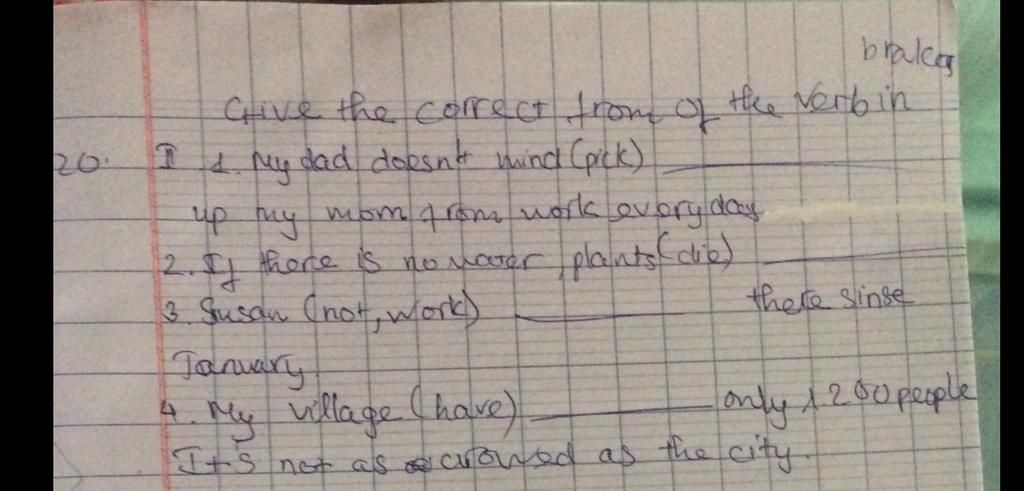 brakes
Give the correct from of the verb in
20. I 1. My dad doesn't mind (pick) ________
up my mom from work every day
2. If there is no water, plants (die) ________
3. Susan (not, work) ________ there sinse
January
4. My village (have) ________ only 1.200 people
It's not as crowed as the city.